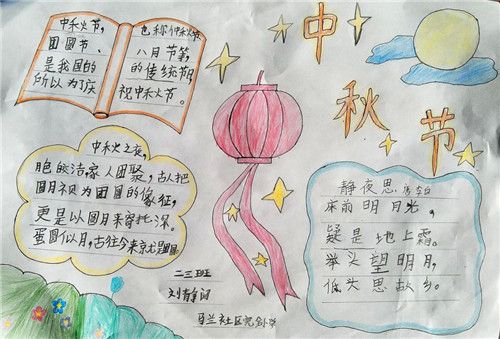 中秋节
中秋节,
团圆节、
是我国的
所以为了庆
也称仲秋节
八月节等,
的传统节
祝中秋节。
中秋之夜,
皎洁,家人团聚,古人把
圆月视为团圆的象征,
更是以圆月来寄托深。
蛋圆似月,古往今来
静夜思 唐 李白
床前明月光,
疑是地上霜。
举头望明月,
低头思故乡。
二三班
刘静
马兰社区完全小学